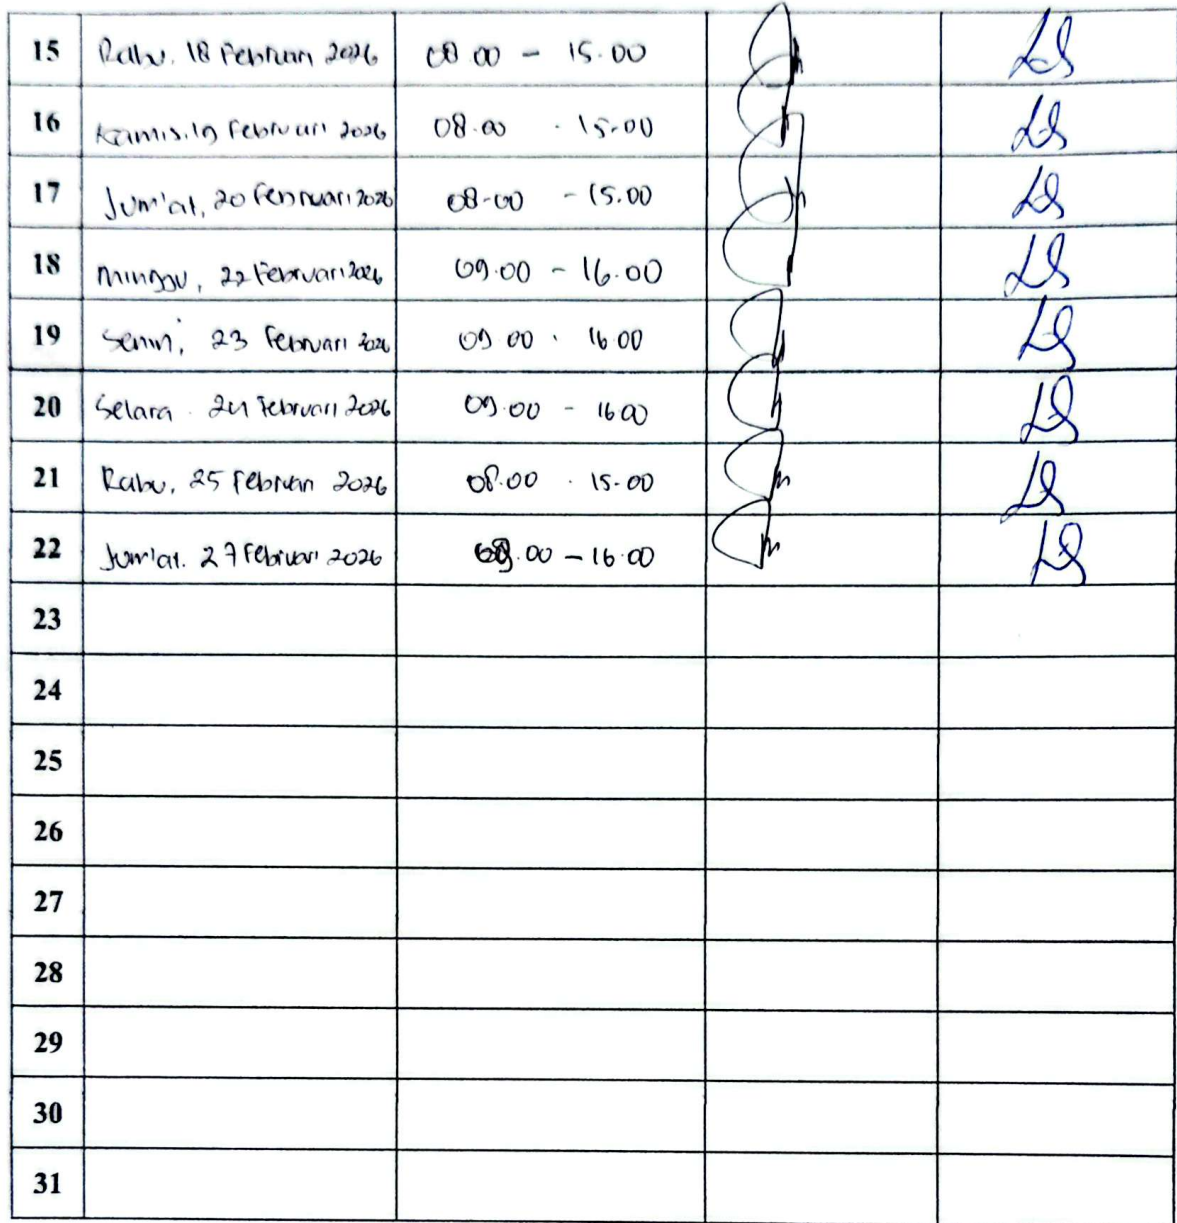 15 Rabu, 18 Februari 2026 08.00 - 15.00
16 Kamis, 19 Februari 2026 08.00 - 15.00
17 Jum'at, 20 Februari 2026 08.00 - 15.00
18 Minggu, 22 Februari 2026 09.00 - 16.00
19 Senin, 23 Februari 2026 09.00 - 16.00
20 Selasa. 24 Februari 2026 09.00 - 16.00
21 Rabu, 25 Februari 2026 08.00 - 15.00
22 Jum'at. 27 Februari 2026 09.00 - 16.00
23
24
25
26
27
28
29
30
31